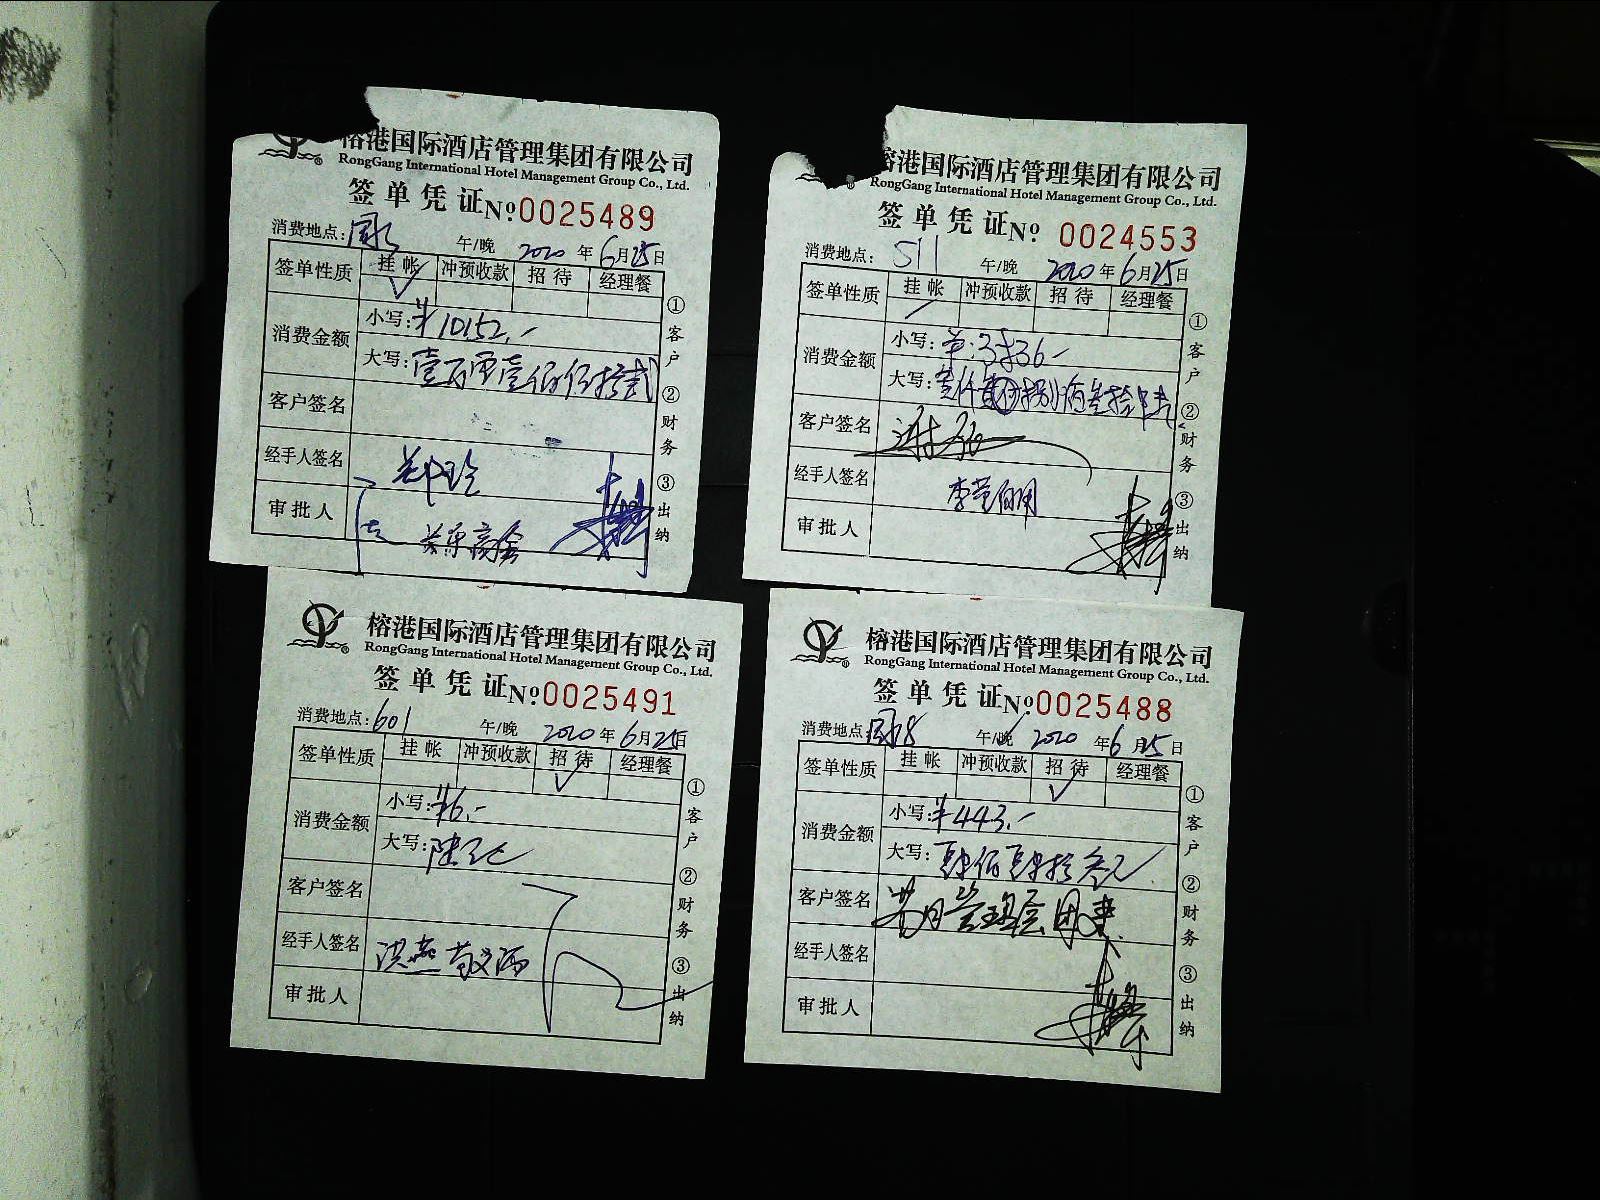 榕港国际酒店管理集团有限公司
RongGang International Hotel Management Group Co., Ltd.
签单凭证 No 0025489
消费地点: 午/晚 2020年6月25日
签单性质 挂帐 冲预收款 招待 经理餐
消费金额 小写:¥10152.-
大写:壹万零壹佰伍拾贰
客户签名
经手人签名
审批人
①客户 ②财务 ③出纳
榕港国际酒店管理集团有限公司
RongGang International Hotel Management Group Co., Ltd.
签单凭证 No 0024553
消费地点: 511 午/晚 2020年6月25日
签单性质 挂帐 冲预收款 招待 经理餐
消费金额 小写:
大写:
客户签名
经手人签名
审批人
①客户 ②财务 ③出纳
榕港国际酒店管理集团有限公司
RongGang International Hotel Management Group Co., Ltd.
签单凭证 No 0025491
消费地点: 601 午/晚 2020年6月25日
签单性质 挂帐 冲预收款 招待 经理餐
消费金额 小写:¥6.-
大写:陆元
客户签名
经手人签名 洪燕
审批人
①客户 ②财务 ③出纳
榕港国际酒店管理集团有限公司
RongGang International Hotel Management Group Co., Ltd.
签单凭证 No 0025488
消费地点: 午/晚 2020年6月25日
签单性质 挂帐 冲预收款 招待 经理餐
消费金额 小写:¥443.-
大写:肆佰肆拾叁元
客户签名
经手人签名
审批人
①客户 ②财务 ③出纳